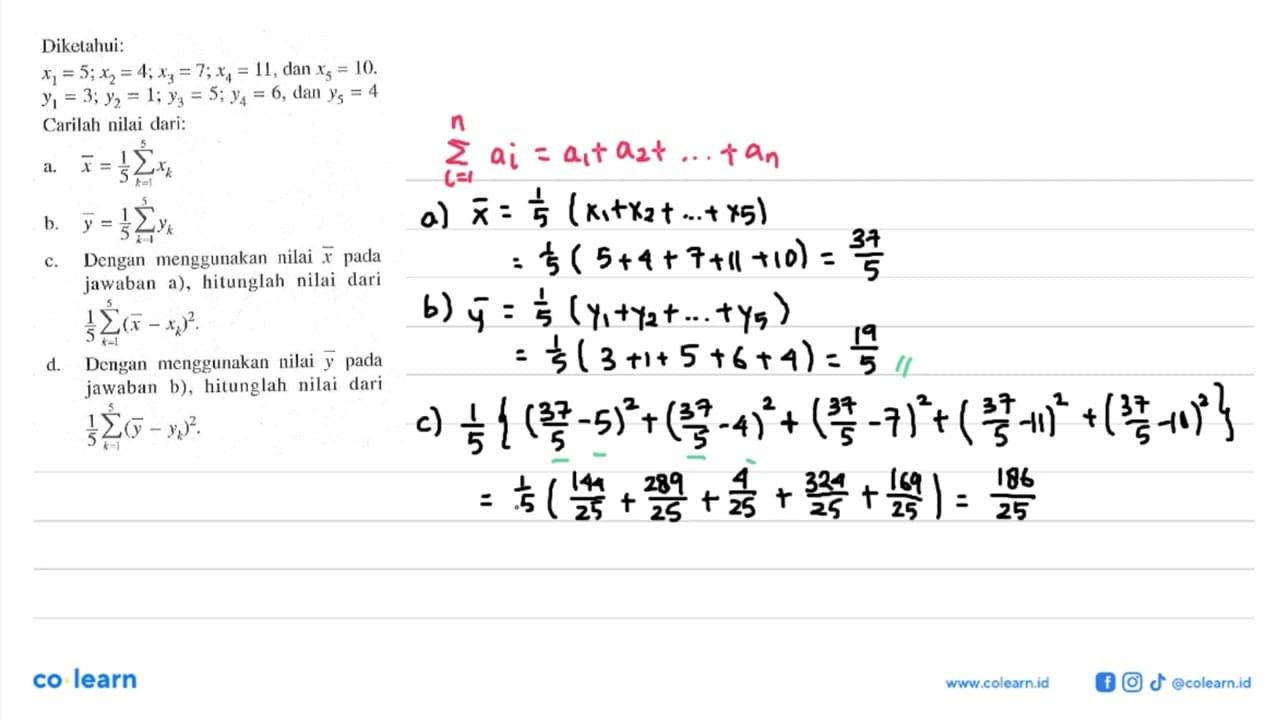 Diketahui:
x₁ = 5; x₂ = 4; x₃ = 7; x₄ = 11, dan x₅ = 10.
y₁ = 3; y₂ = 1; y₃ = 5; y₄ = 6, dan y₅ = 4
Carilah nilai dari:
a. x̄ = 1/5 ∑_{k=1}^{5} xₖ
b. ȳ = 1/5 ∑_{k=1}^{5} yₖ
c. Dengan menggunakan nilai x̄ pada
jawaban a), hitunglah nilai dari
1/5 ∑_{k=1}^{5} (x̄ − xₖ)².
d. Dengan menggunakan nilai ȳ pada
jawaban b), hitunglah nilai dari
1/5 ∑_{k=1}^{5} (ȳ − yₖ)².
∑_{i=1}^{n} aᵢ = a₁ + a₂ + ... + aₙ
a) x̄ = 1/5 (x₁+x₂+...+x₅)
= 1/5 (5+4+7+11+10) = 37/5
b) ȳ = 1/5 (y₁+y₂+...+y₅)
= 1/5 (3+1+5+6+4) = 19/5 //
c) 1/5 {(37/5 −5)² + (37/5 −4)² + (37/5 −7)² + (37/5 −11)² + (37/5 −10)²}
= 1/5 (144/25 + 289/25 + 4/25 + 324/25 + 169/25) = 186/25
co learn
www.colearn.id
@colearn.id